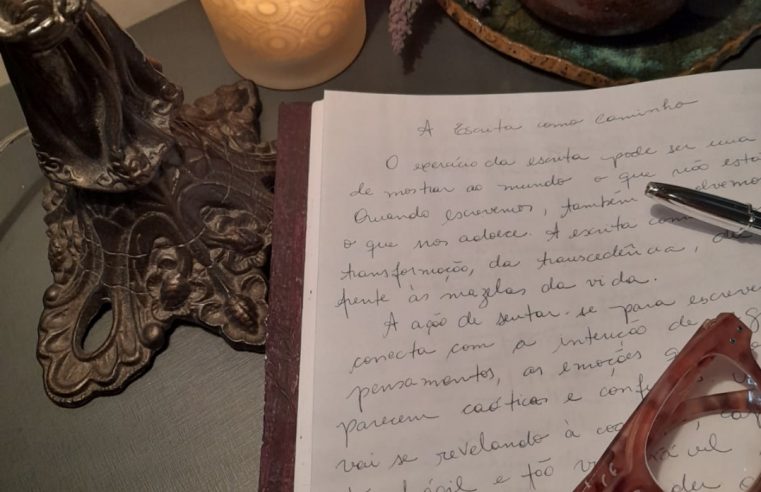 A Escrita como caminho
O exercício da escrita pode ser uma
de mostrar ao mundo o que não está
Quando escrevemos, também
o que nos adoece. A escrita com
transformação, da transcedência, de
frente às mazelas da vida.
A ação de sentar-se para escrever
conecta com a intenção de
pensamentos, as emoções
parecem caóticas e
vai se revelando à
e tão